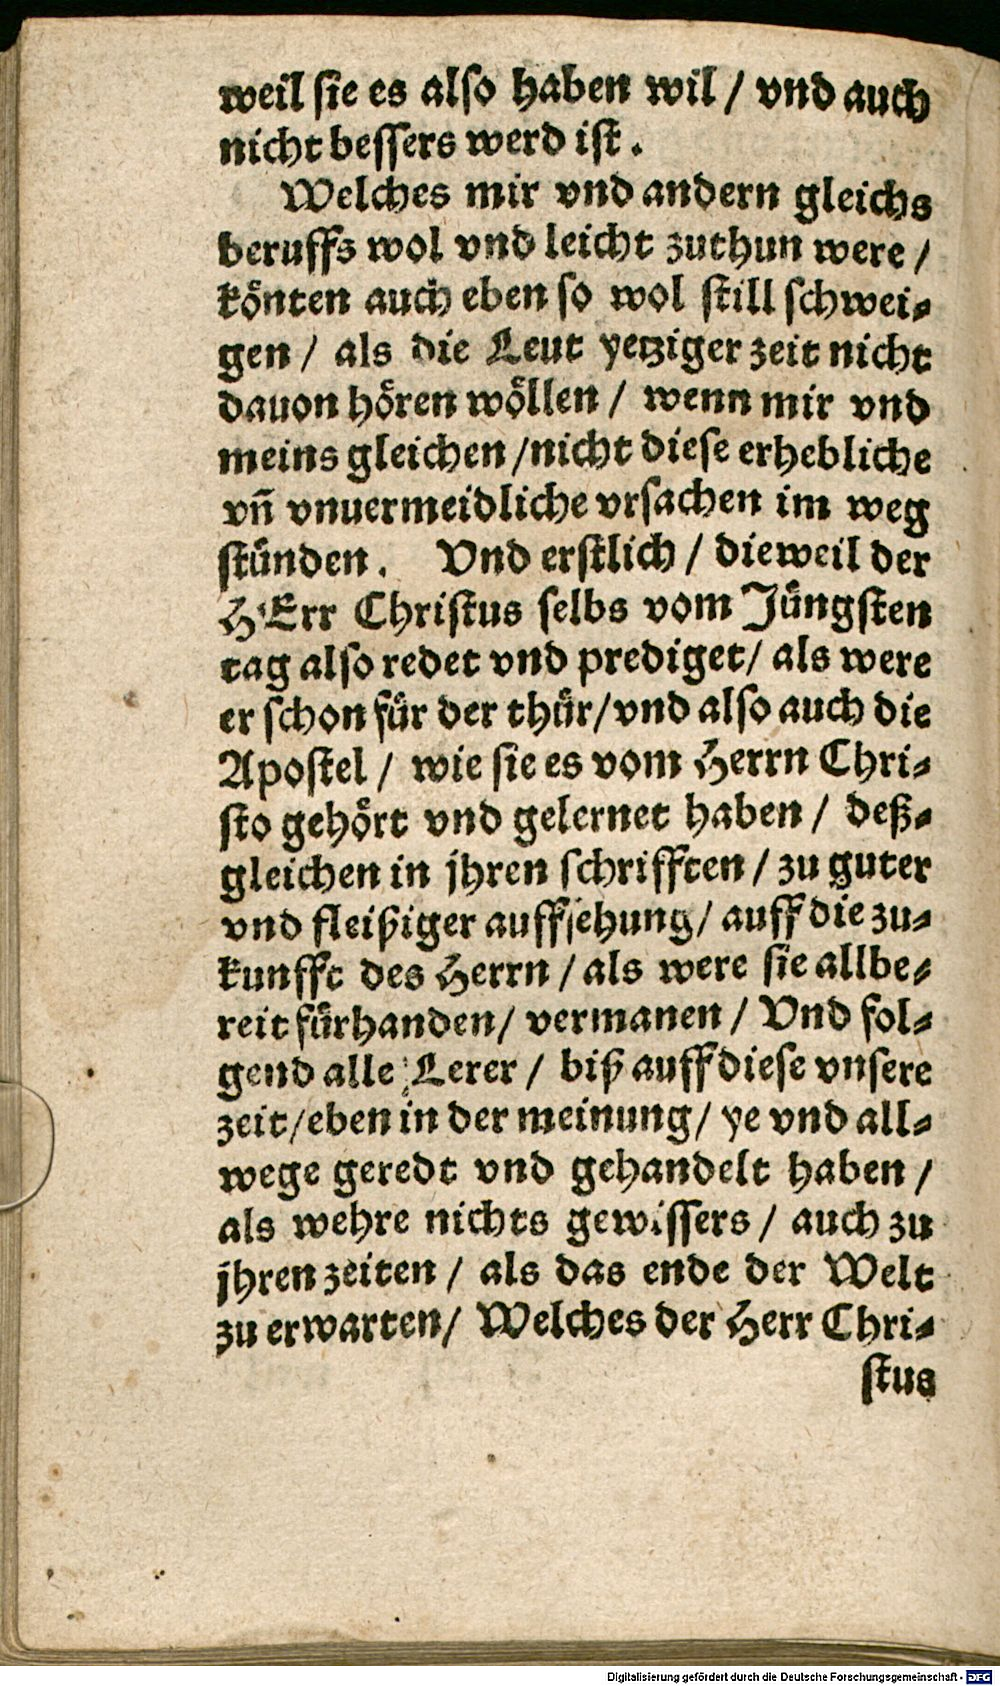 weil sie es also haben wil / vnd auch
nicht bessers werd ist.
Welches mir vnd andern gleichs
beruffs wol vnd leicht zuthun were /
könten auch eben so wol still schwei⸗
gen / als die Leut yetziger zeit nicht
dauon hören wöllen / wenn mir vnd
meins gleichen / nicht diese erhebliche
vñ vnuermeidliche vrsachen im weg
stünden. Vnd erstlich / dieweil der
HErr Christus selbs vom Jüngsten
tag also redet vnd prediget / als were
er schon für der thür / vnd also auch die
Apostel / wie sie es vom Herrn Chri⸗
sto gehört vnd gelernet haben / deß⸗
gleichen in jhren schrifften / zu guter
vnd fleißiger auffsehung / auff die zu⸗
kunfft des Herrn / als were sie allbe⸗
reit fürhanden / vermanen / Vnd fol⸗
gend alle Lerer / biß auff diese vnsere
zeit / eben in der meinung / ye vnd all⸗
wege geredt vnd gehandelt haben /
als wehre nichts gewissers / auch zu
jhren zeiten / als das ende der Welt
zu erwarten / Welches der Herr Chri⸗
stus
Digitalisierung gefördert durch die Deutsche Forschungsgemeinschaft - DFG